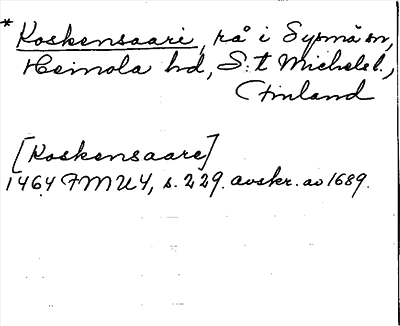 * Koskensaari, rå i Sysmä sn,
Heinola hd, S:t Michels l.,
Finland
[Koskensaare]
1464 FMU 4, s. 229. avskr. av 1689.